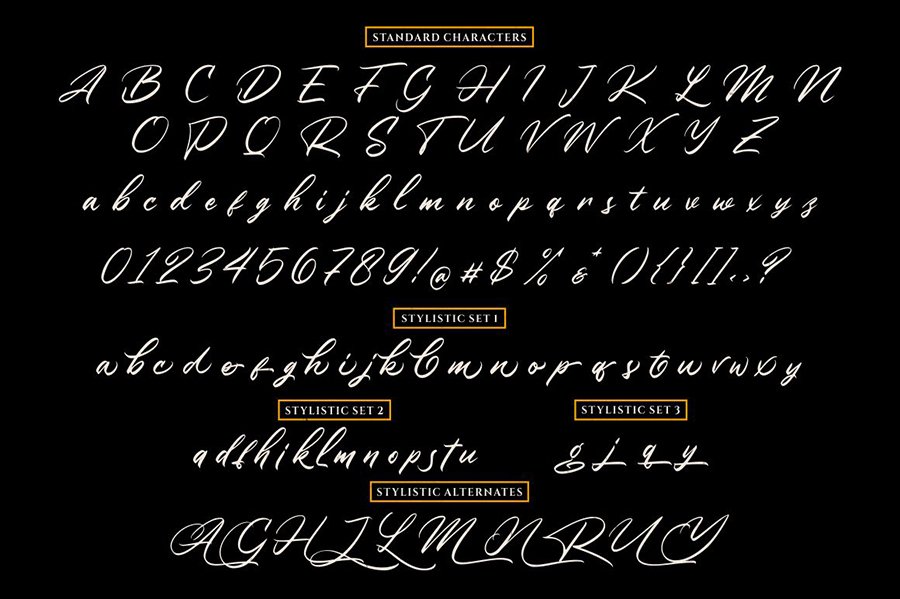 STANDARD CHARACTERS
A B C D E F G H I J K L M N
O P Q R S T U V W X Y Z
a b c d e f g h i j k l m n o p q r s t u v w x y z
0 1 2 3 4 5 6 7 8 9 ! @ # $ % & * ( ) { } [ ] , . ?
STYLISTIC SET 1
a b c d e f g h i j k l m n o p q r s t u v w x y
STYLISTIC SET 2
a d f h i k l m n o p s t u
STYLISTIC SET 3
g j q y
STYLISTIC ALTERNATES
A G H J L M N R U Y